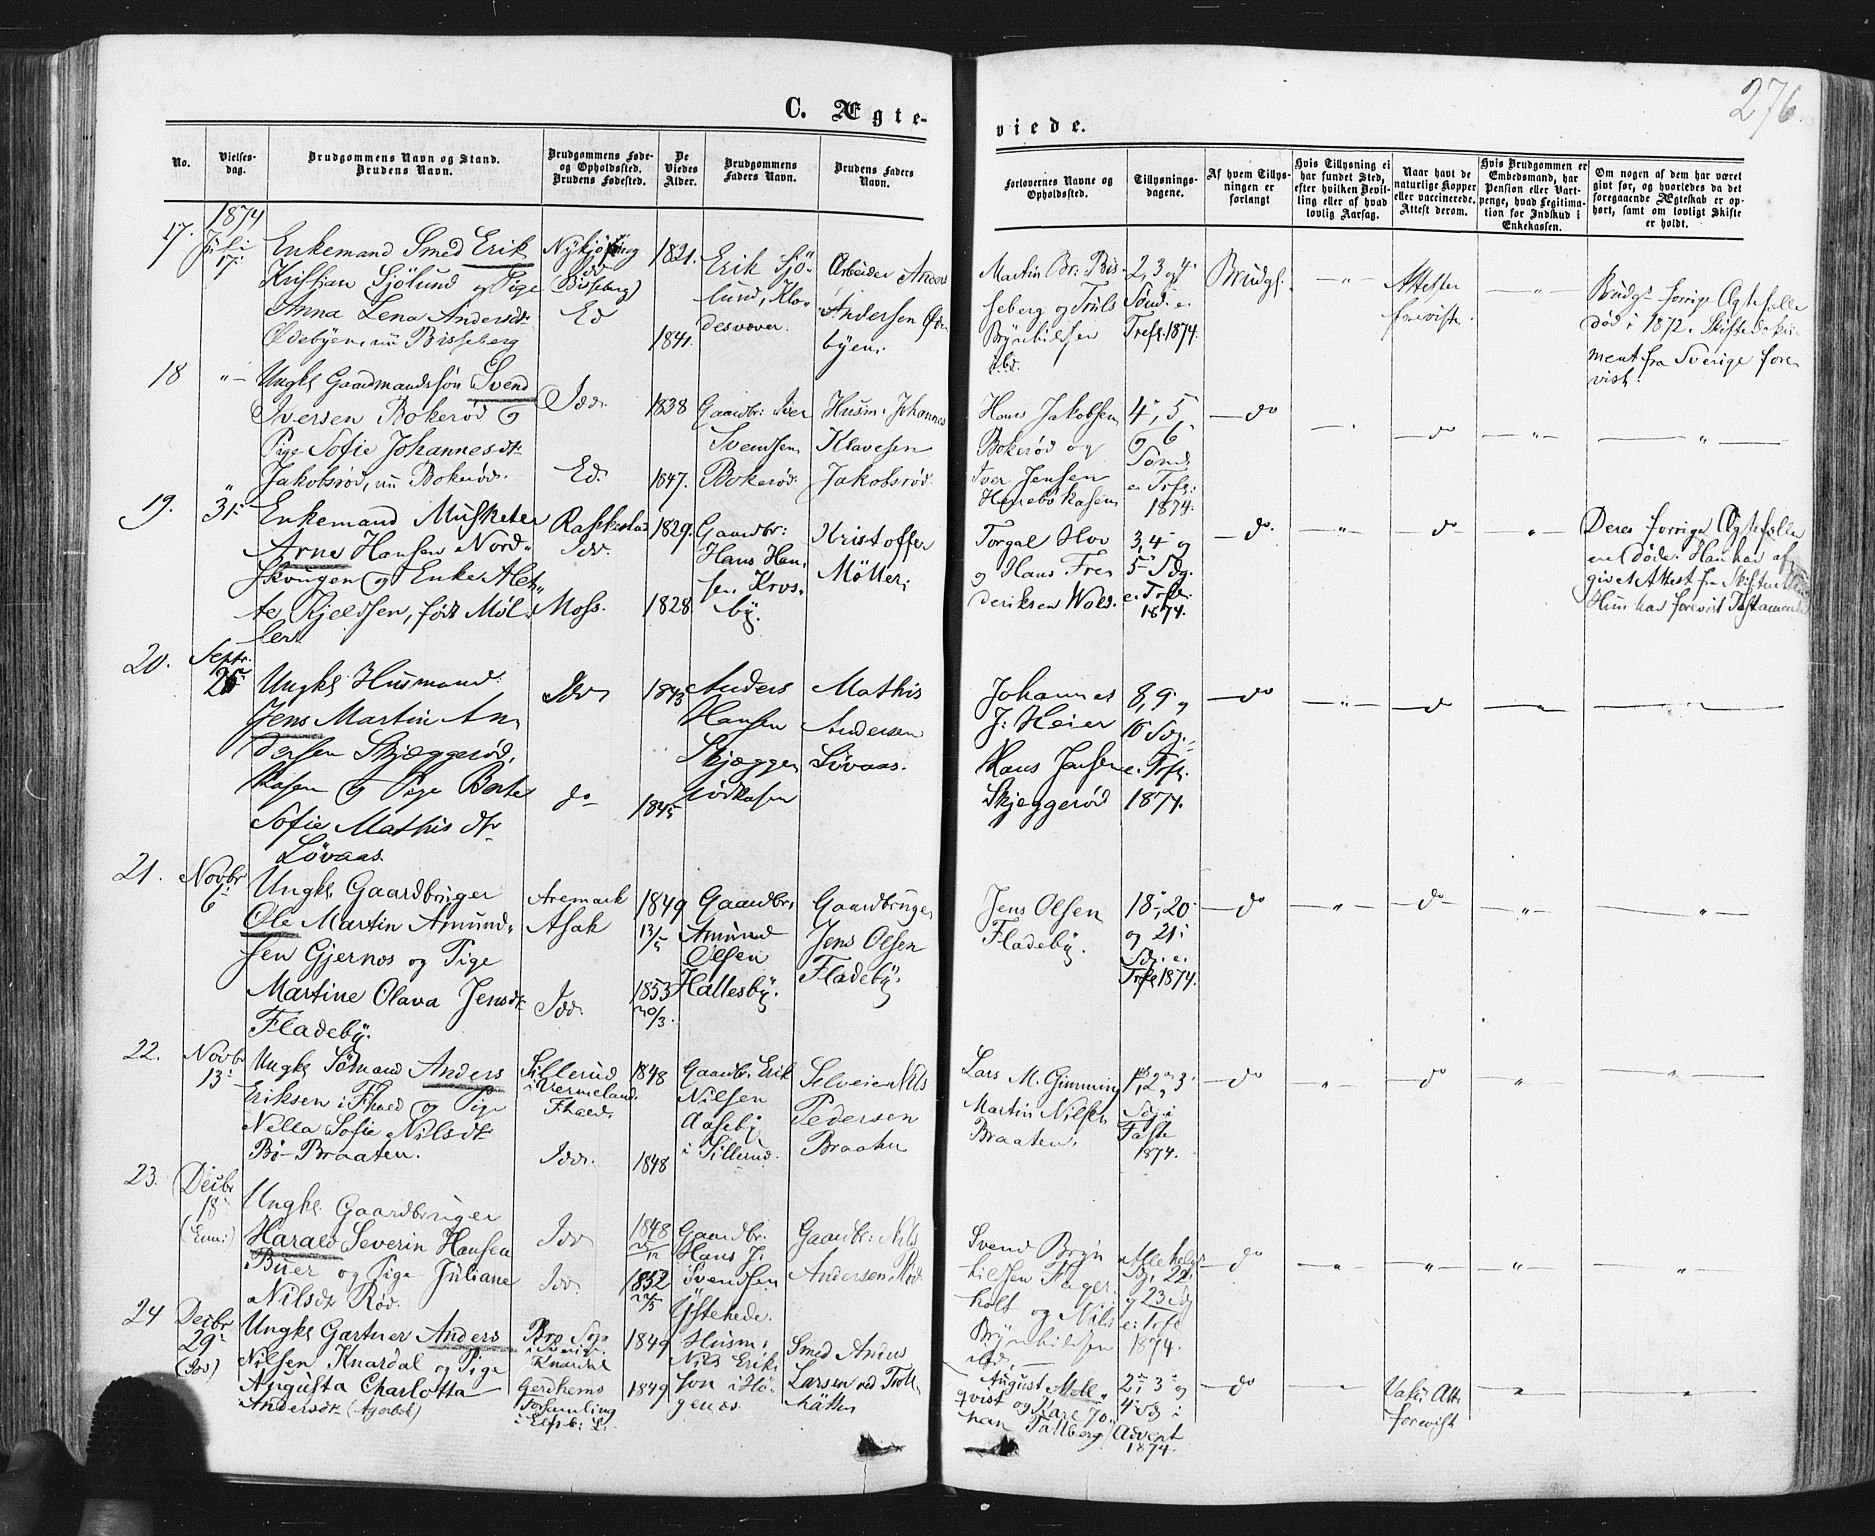 276.
C. Ægte-
viede.
No.
Vielses-
dag.
Brudgommens Navn og Stand.
Brudens Navn.
Brudgommens Føde-
og Opholdssted.
Brudens Fødested.
De
Viedes
Alder.
Brudgommens
Faders Navn.
Brudens Faders
Navn.
Forlovernes Navne og
Opholdssted.
Tillysnings-
dagene.
Af hvem Tillys-
ningen er
forlangt
Hvis Tillysning ei
har fundet Sted,
efter hvilken Bevil-
ling eller af hvad
lovlig Aarsag.
Naar havt de
naturlige Kopper
eller vaccinerede.
Attest derom.
Hvis Brudgommen er
Embedsmand, har
Pension eller Vart-
penge, hvad Legitima-
tion for Indskud i
Enkekassen.
Om nogen af dem har været
gift før, og hvorledes da det
foregaaende Ægteskab er op-
hørt, samt om lovligt Skifte
er holdt.
1874
17.
Juli
17.
Enkemand Smed Erik
Kristian Sjölund og Pige
Anna Lena Andersdt.
Ødebyen, nu Bisseberg
Nykjøbing
Idd
(Bisseberg)
Ed
1821.
1841.
Erik Sjö-
lund, Klo-
desvæver.
Arbeider Anders
Andersen Øde-
byen.
Martin Br: Bis-
seberg og Truls
Brynhilsen
ibd.
2, 3 og 4
Sönd. e.
Tref. 1874.
Brudg.
-"-
Attester
forevist.
-"-
Brudg. forrige Ægtefælle
död i 1872. Skiftedoku-
ment fra Sverige fore-
vist.
18
"-
Ungkl Gaardmandssön Svend
Iversen Bokeröd og
Pige Sofie Johannesdt.
Jakobsröd, nu Bokeröd.
Idd.
Ed.
1838
1847.
Gaardbr: Iver
Svendsen
Bokeröd.
Husm: Johannes
Klavesen
Jakobsröd.
Hans Jakobsen
Bokeröd og
Iver Jensen
Hennebökasen
4, 5
og 6
Sönd.
e. Trefr:
1874.
do
-"-
do
-"-
"
19.
"
31.
Enkemand Musketer
Arne Hansen Nord-
skougen og Enke Alet-
te Kjeldsen, født Möl-
ler.
Rakkestad
Idd.
Moss.
1829.
1828.
Gaardbr:
Hans Han-
sen Kros-
by.
Kristoffer
Möller.
Torgal Hov
og Hans Fre-
deriksen Wold.
3, 4 og
5 Sdg.
e. Trefr.
1874.
do.
-"-
do
"
Deres forrige Ægtefæller
ere döde. Han har af-
givet Attest fra Skifteretten
Hun har forevist Testamente
20.
Septr.
25
Ungkl Husmand
Jens Martin An-
dersen Skjæggeröd-
kasen og Pige Berte
Sofie Mathisdtr
Lövaas.
Idd
do
1843
1845
Anders
Hansen
Skjægge-
rödkasen
Mathis
Andersen
Lövaas.
Johannes
J. Heier
Hans Jensen
Skjeggeröd
8, 9 og
10 Sdg.
e. Trfr.
1874.
do
-"-
do
"
21.
Novbr
6
Ungkl Gaardbruger
Ole Martin Amund-
sen Gjernos og Pige
Martine Olava Jensdt.
Fladeby.
Aremark
Asak
Idd.
1849
13/5
1853
20/3.
Gaardbr.
Amund
Olsen
Hallesby.
Gaardbruger
Jens Olsen
Fladeby.
Jens Olsen
Fladeby.
18, 20
og 21
Sdg. e.
Trfr 1874.
do
"
do
"
"
22.
Novbr
13
Ungkl Sömand Anders
Eriksen i Fhald og Pige
Nella Sofie Nilsdt.
Bö-Braaten.
Sillerud
i Vermeland
Fhald.
Idd.
1848
1848
Gaardbr. Erik
Nilsen
Aaseby
i Sillerud.
Selveier Nils
Pedersen
Braaten
Lars M. Gimming
Martin Nilsen
Braaten.
1, 2 og 3
Sdg i
Faste
1874.
do
"
do
"
"
23.
Decbr
18
Ungkl Gaardbruger
Harald Severin Hansen
Buer og Pige Juliane
Nilsdt. Röd.
Idd
Idd
1848
1852
Gaardbr.
Hans J.
Svendsen
Ystehede.
Gaardbr: Nils
Andersen Röd.
Svend Bryn-
hilsen Fager-
holt og Nils
Brynhildsen
ibd.
Allehelgs
Sdg. 22
og 23 Sdg
e. Trfr
1874.
do
"
"
"
"
24
Decbr
29
(Idd)
Ungkl Gartner Anders
Nilsen Knardal og Pige
Augusta Charlotta
Andersdt.
Bro Sogn
i Sverige.
Knardal
Gerdhems
Forsamling
i Elfsb: L.
1849
1849
Husm:
Nils Erik-
son i Hö-
genäs.
Smed Anders
Larsen ved Troll-
hättan
August Mell-
qvist og Karl Jo-
han Tallberg
2, 3 og
4 Sdg i
Advent
1874.
do
"
Vakc. Att.
forevist
"
"